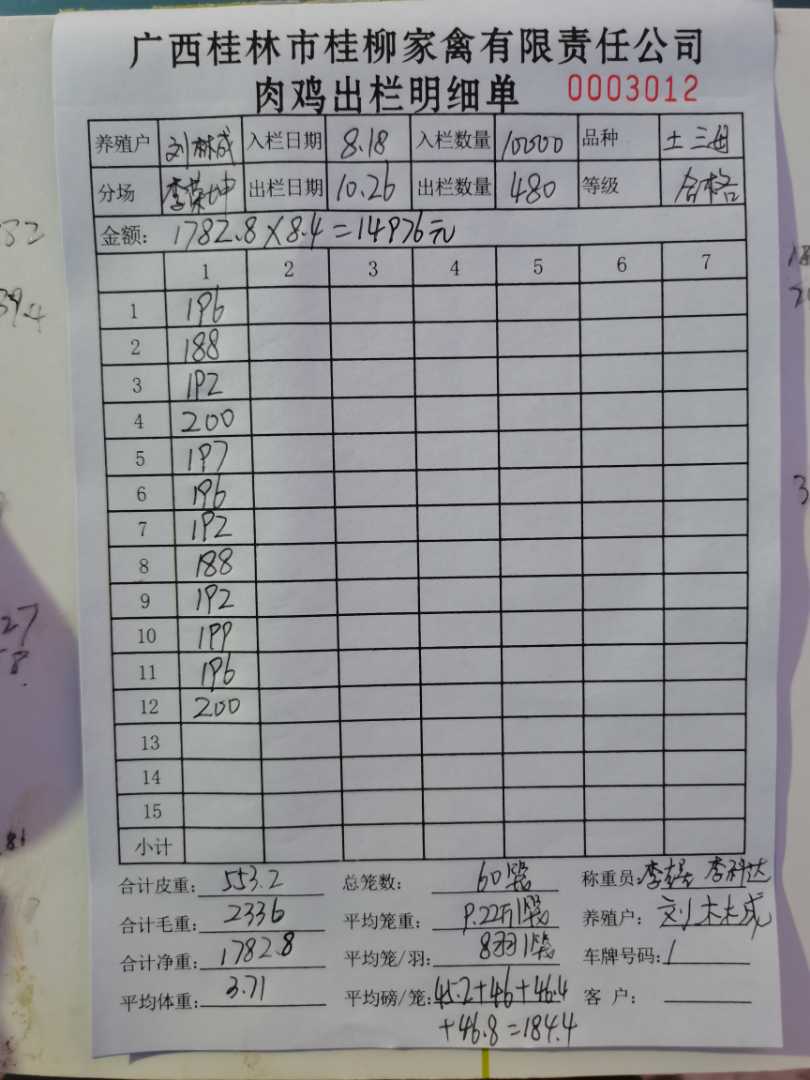 广西桂林市桂柳家禽有限责任公司
肉鸡出栏明细单 0003012
养殖户 刘林成 入栏日期 8.18 入栏数量 10000 品种 土三母
分场 李荣坤 出栏日期 10.26 出栏数量 480 等级 合格
金额: 1782.8×8.4=14976元
1 2 3 4 5 6 7
1 196
2 188
3 192
4 200
5 197
6 196
7 192
8 188
9 192
10 199
11 196
12 200
13
14
15
小计
合计皮重: 553.2 总笼数: 60笼 称重员: 李科达
合计毛重: 2336 平均笼重: 9.22斤/笼 养殖户: 刘林成
合计净重: 1782.8 平均笼/羽: 8羽/笼 车牌号码: /
平均体重: 3.71 平均磅/笼: 45.2+46+46.4 客 户:
+46.8=184.4